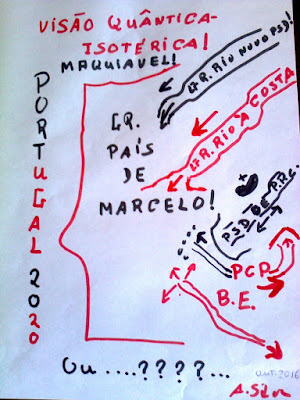 VISÃO QUÂNTICA-
ISOTÉRICA!
MAQUIAVEL!
PORTUGAL 2020
GR.
PAÍS
DE
MARCELO!
GR. RIO NOVO PSD!
GR. RIO À COSTA
PSD DE P.P.C.
PCP
B.E.
OU ....????...
OUT. 2016
A. Silva